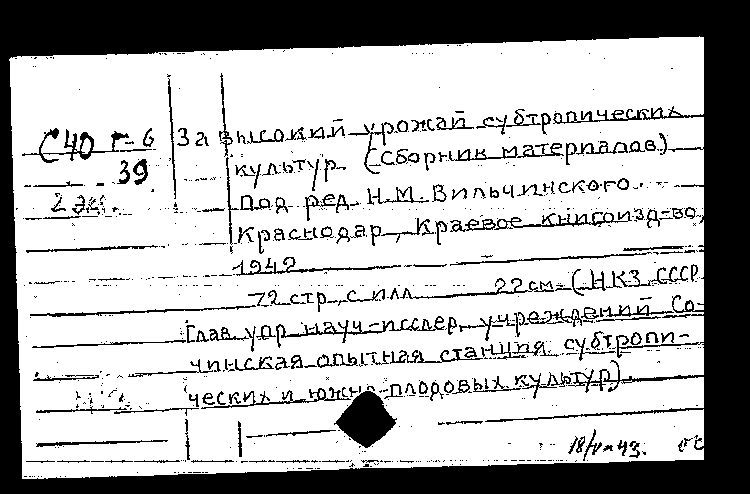 С40 г-6
39
2 экз.
За высокий урожай субтропических
культур. (Сборник материалов).
Под ред. Н.М. Вильчинского.
Краснодар, Краевое книгоизд-во,
1949
72 стр. с илл. 22 см. (НКЗ СССР
Глав. упр. науч-исслед. учреждений Со-
чинская опытная станция субтропи-
ческих и южно-плодовых культур).